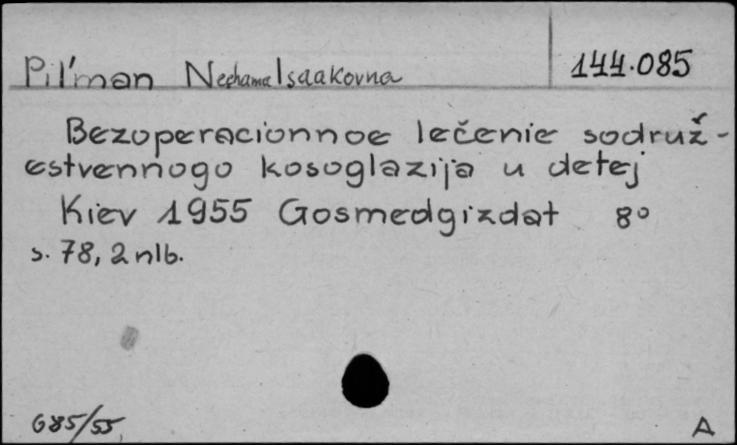 Pil'man Nechama Isaakovna 144.085
Bezoperacionnoe lečenie sodruž-
estvennogo kosoglazija u detej
Kiev 1955 Gosmedgizdat 8°
s. 78, 2 nlb.
685/55,
A